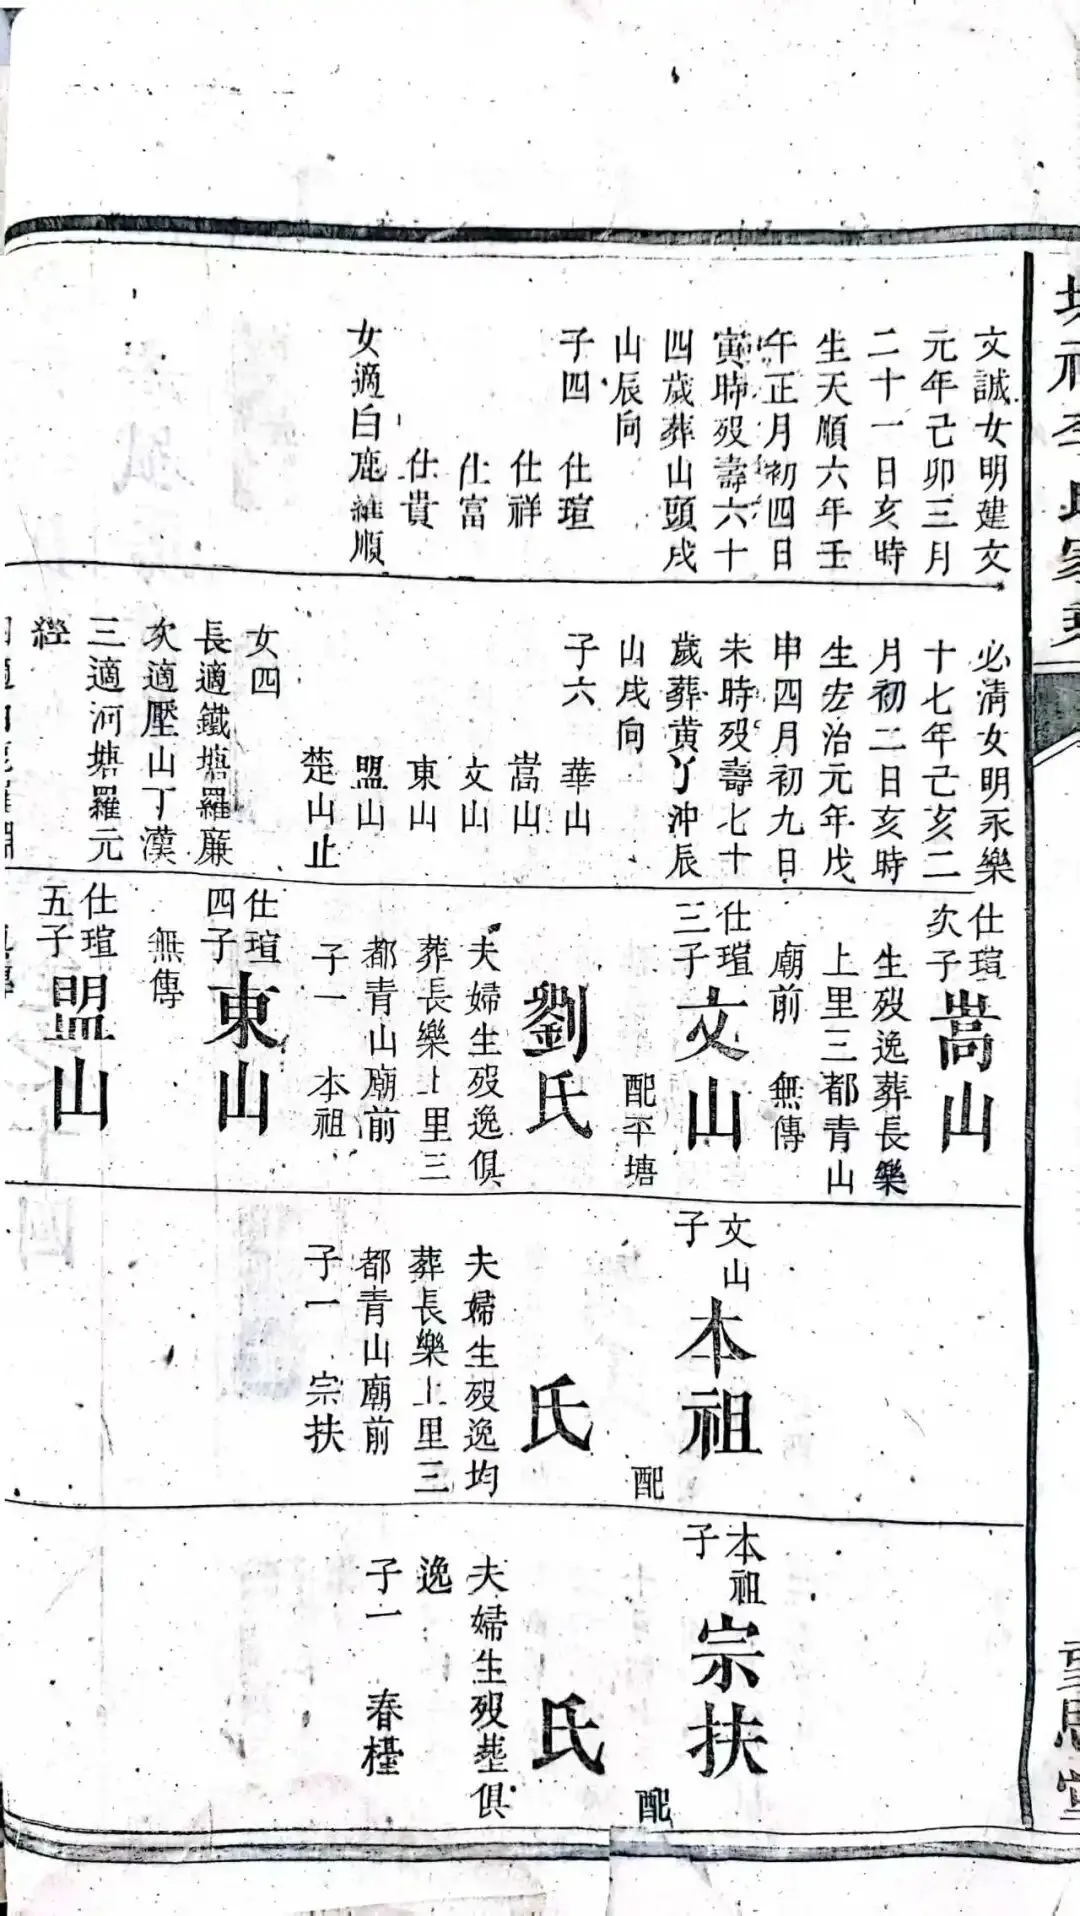 文誠女明建文
元年己卯三月
二十一日亥時
生天順六年壬
午正月初四日
寅時歿壽六十
四歲葬山頭戌
山辰向
子四 仕瑄
仕祥
仕富
仕貴
女適白鹿羅順
必清女明永樂
十七年己亥二
月初二日亥時
生宏治元年戊
申四月初九日
未時歿壽七十
歲葬黄丫沖辰
山戌向
子六 華山
嵩山
文山
東山
盟山
楚山止
女四
長適鐵塘羅廉
次適壓山丁漢
三適河塘羅元
經
仕瑄
次子
嵩山
生歿逸葬長樂
上里三都青山
廟前 無傳
仕瑄
三子
文山
配平塘
劉氏
夫婦生歿逸俱
葬長樂上里三
都青山廟前
子一 本祖
仕瑄
四子
東山
無傳
仕瑄
五子
盟山
文山
子
本祖
配
氏
夫婦生歿逸均
葬長樂上里三
都青山廟前
子一 宗扶
本祖
子
宗扶
配
氏
夫婦生歿塟俱
逸
子一 春檯